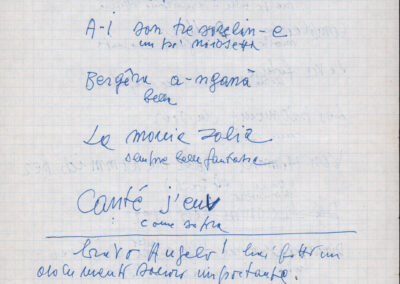 A-i son tre sorelin-e
un po' noiosetta
Bergera a-ngana
bella
La monia solia
sempre bella fantasia
Canté j'euv
come sopra
bravo Angelo! hai fatto un
documento sonoro importante.